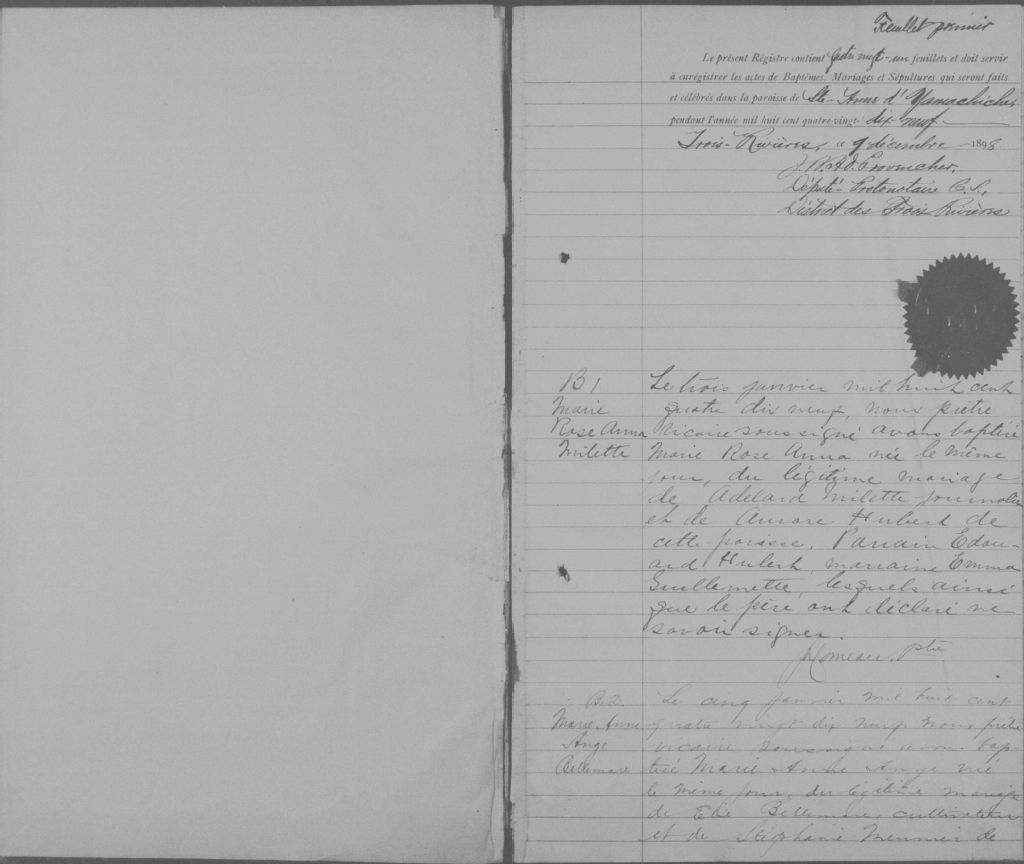 Feuillet premier
Le présent Régistre contient quatre vingt-un feuillets et doit servir
à enrégistrer les actes de Baptêmes, Mariages et Sépultures qui seront faits
et célébrés dans la paroisse de Ste-Anne d'Yamachiche,
pendant l'année mil huit cent quatre-vingt- dix-neuf.
Trois-Rivières, ce 9 décembre 1898
Député-Protonotaire C.S.,
District des Trois Rivières
B 1
Marie
Rose Anna
Milette
Le trois janvier mil huit cent
quatre dix neuf, nous prêtre
vicaire soussigné avons baptisé
Marie Rose Anna née le même
jour, du légitime mariage
de Adelard Milette journalier
et de Aurore Hubert de
cette paroisse. Parrain Edou-
ard Hubert, marraine Emma
Guillemette, lesquels ainsi
que le père ont déclaré ne
savoir signer.
Comeau, Ptre
B.2.
Marie Anne
Ange
Bellemare
Le cinq janvier mil huit cent
quatre vingt dix neuf nous prêtre
vicaire soussigné avons bap-
tisé Marie Anne Ange née
le même jour, du légitime mariage
de Elie Bellemare, cultivateur
et de Stéphanie Meunier de